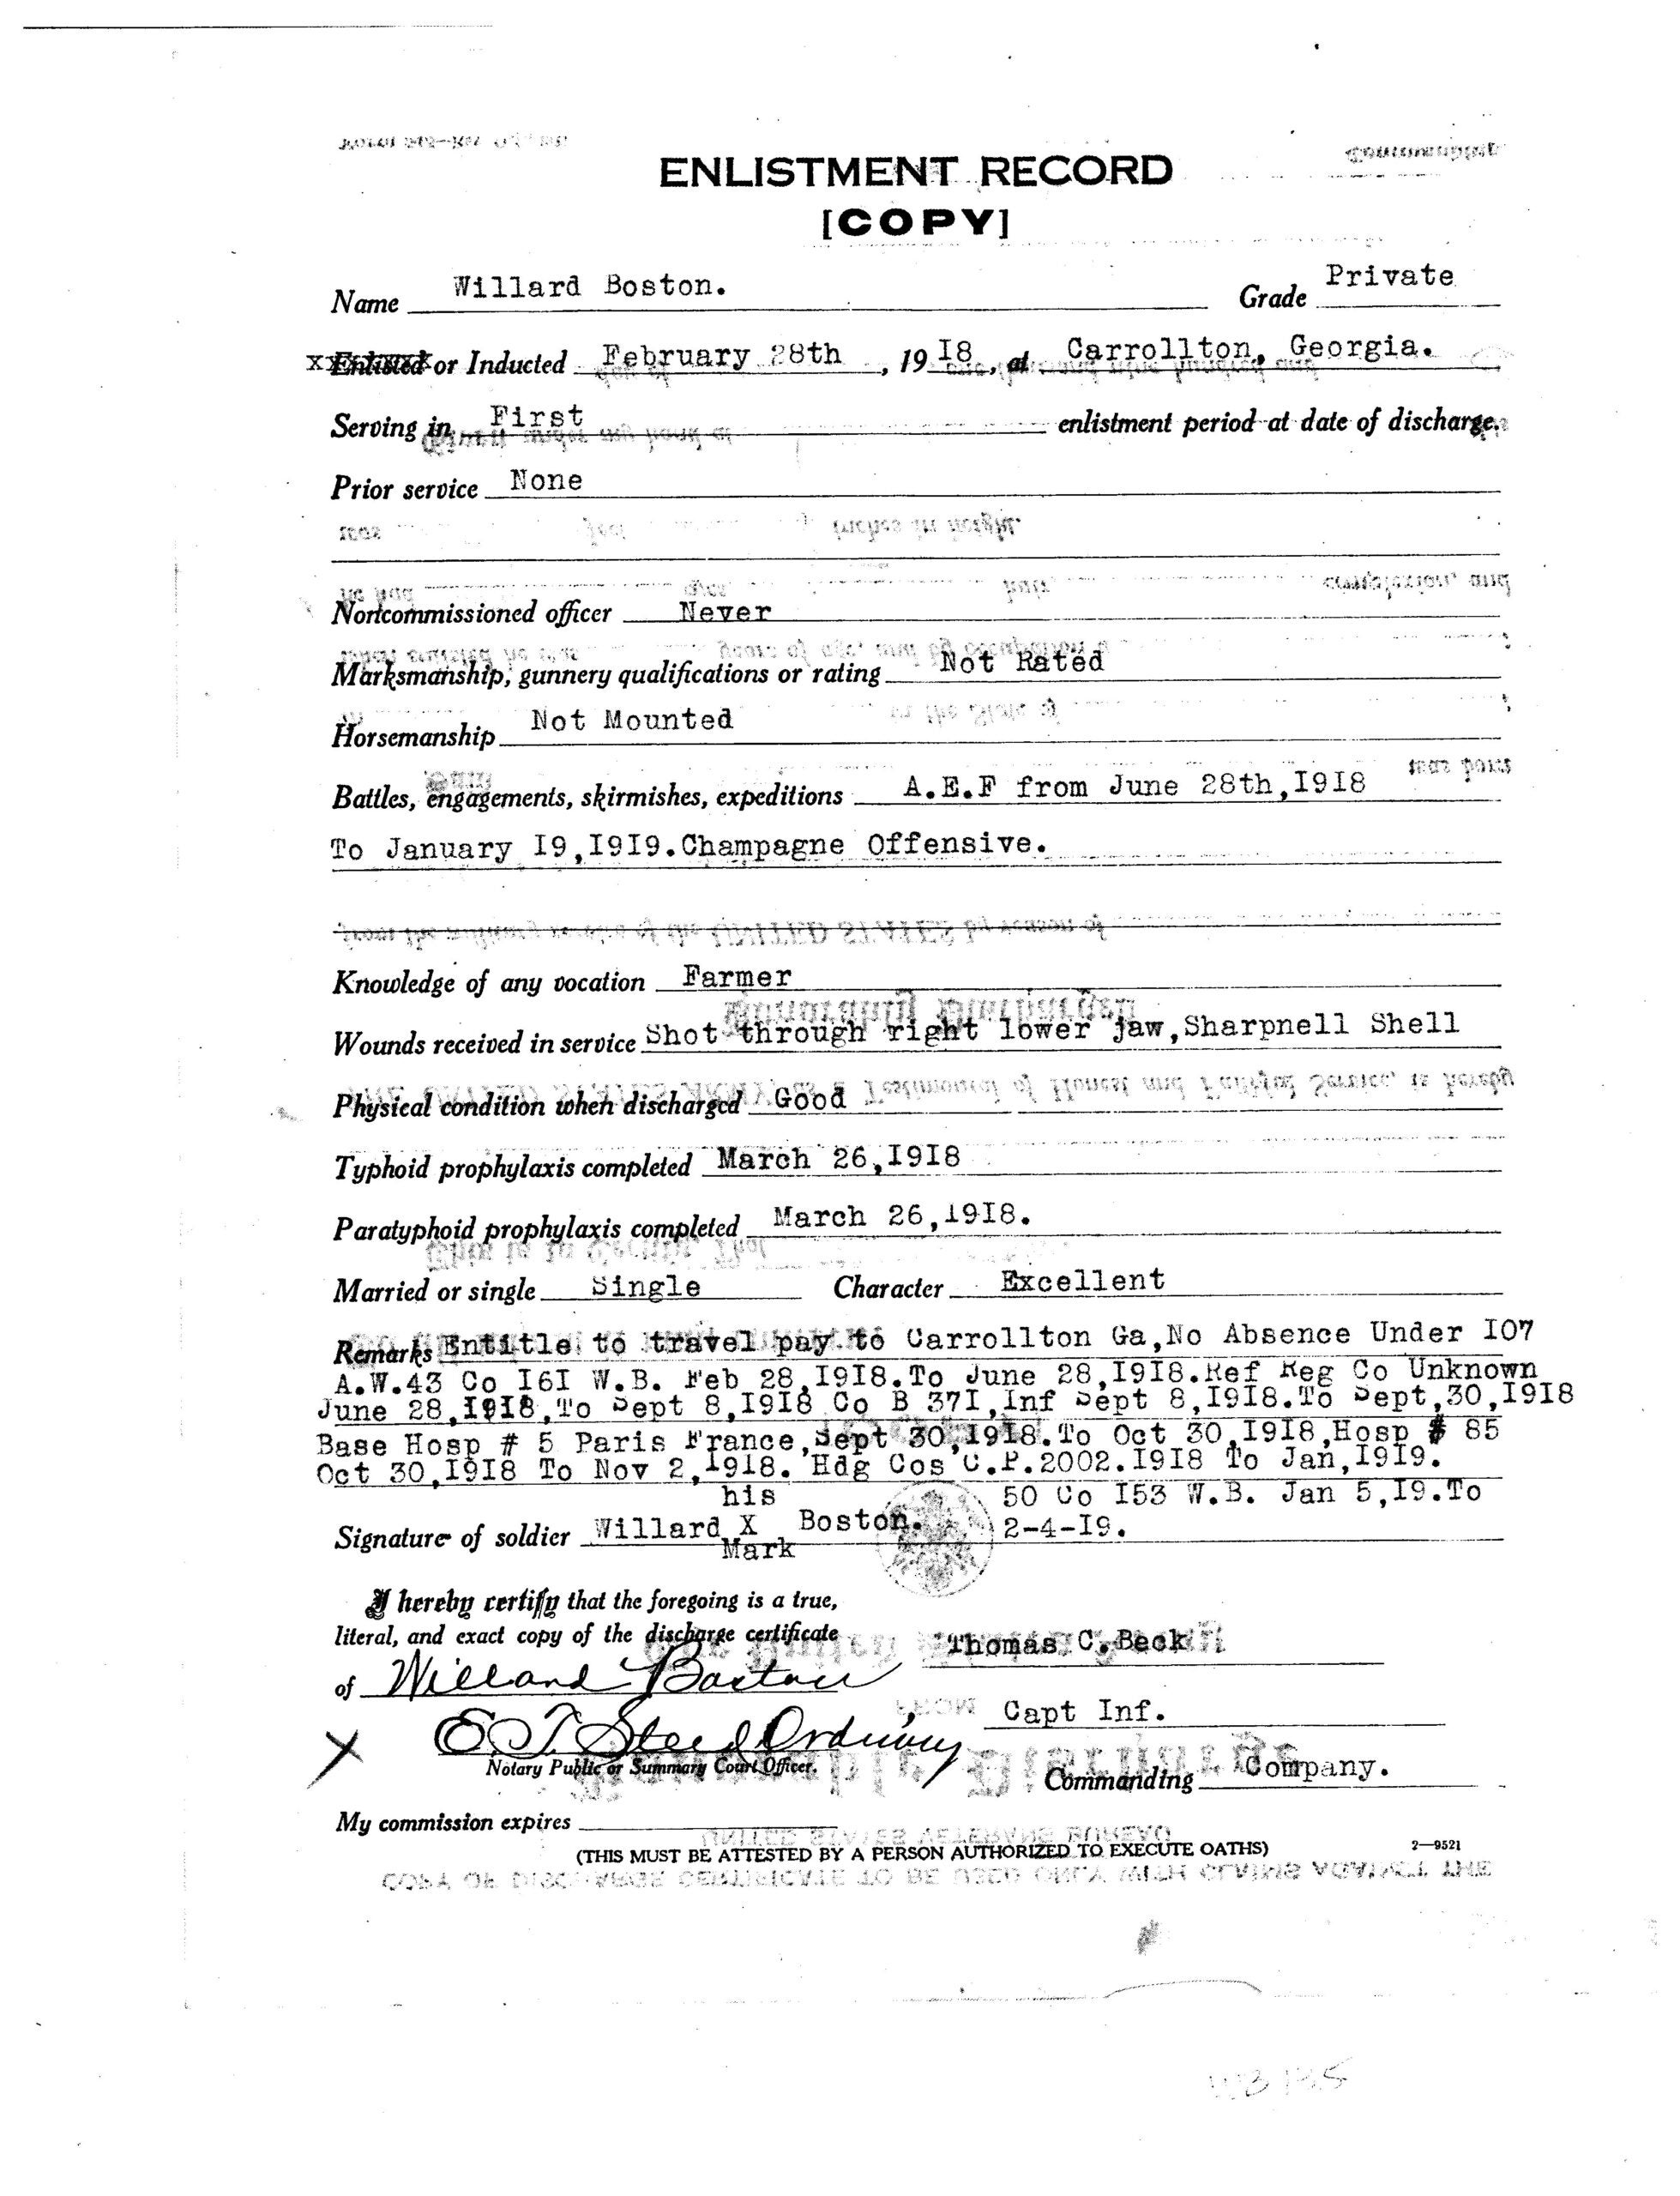 ENLISTMENT RECORD
[COPY]
Name Willard Boston. Grade Private
xxxxxxxx Enlisted or Inducted February 28th, 19I8, at Carrollton, Georgia.
Serving in First enlistment period at date of discharge.
Prior service None
inches in height.
Noncommissioned officer Never
Marksmanship, gunnery qualifications or rating Not Rated
Horsemanship Not Mounted
Battles, engagements, skirmishes, expeditions A.E.F from June 28th,I9I8
To January I9,I9I9.Champagne Offensive.
from the military service of the UNITED STATES by reason of
Knowledge of any vocation Farmer
Wounds received in service Shot through right lower jaw,Sharpnell Shell
Physical condition when discharged Good
Typhoid prophylaxis completed March 26,I9I8
Paratyphoid prophylaxis completed March 26,19I8.
Married or single Single Character Excellent
Remarks Entitle to travel pay to Carrollton Ga,No Absence Under I07
A.W.43 Co I6I W.B. Feb 28,I9I8.To June 28,I9I8.Ref Reg Co Unknown
June 28,I9I8,To Sept 8,I9I8 Co B 37I,Inf Sept 8,I9I8.To Sept,30,I9I8
Base Hosp # 5 Paris France,Sept 30,19I8.To Oct 30,I9I8,Hosp # 85
Oct 30,I9I8 To Nov 2,1918. Hdg Cos C.P.2002.I9I8 To Jan,I9I9.
his 50 Co I53 W.B. Jan 5,I9.To
Signature of soldier Willard X Boston. 2-4-I9.
Mark
I hereby certify that the foregoing is a true,
literal, and exact copy of the discharge certificate Thomas C. Beck
of Willard Boston
Capt Inf.
X E. T. Steed Ordinary
Notary Public or Summary Court Officer.
Commanding Company.
My commission expires
(THIS MUST BE ATTESTED BY A PERSON AUTHORIZED TO EXECUTE OATHS) 2—9521
UNITED STATES VETERANS BUREAU
COPY OF DISCHARGE CERTIFICATE TO BE USED ONLY WITH CLAIMS AGAINST THE